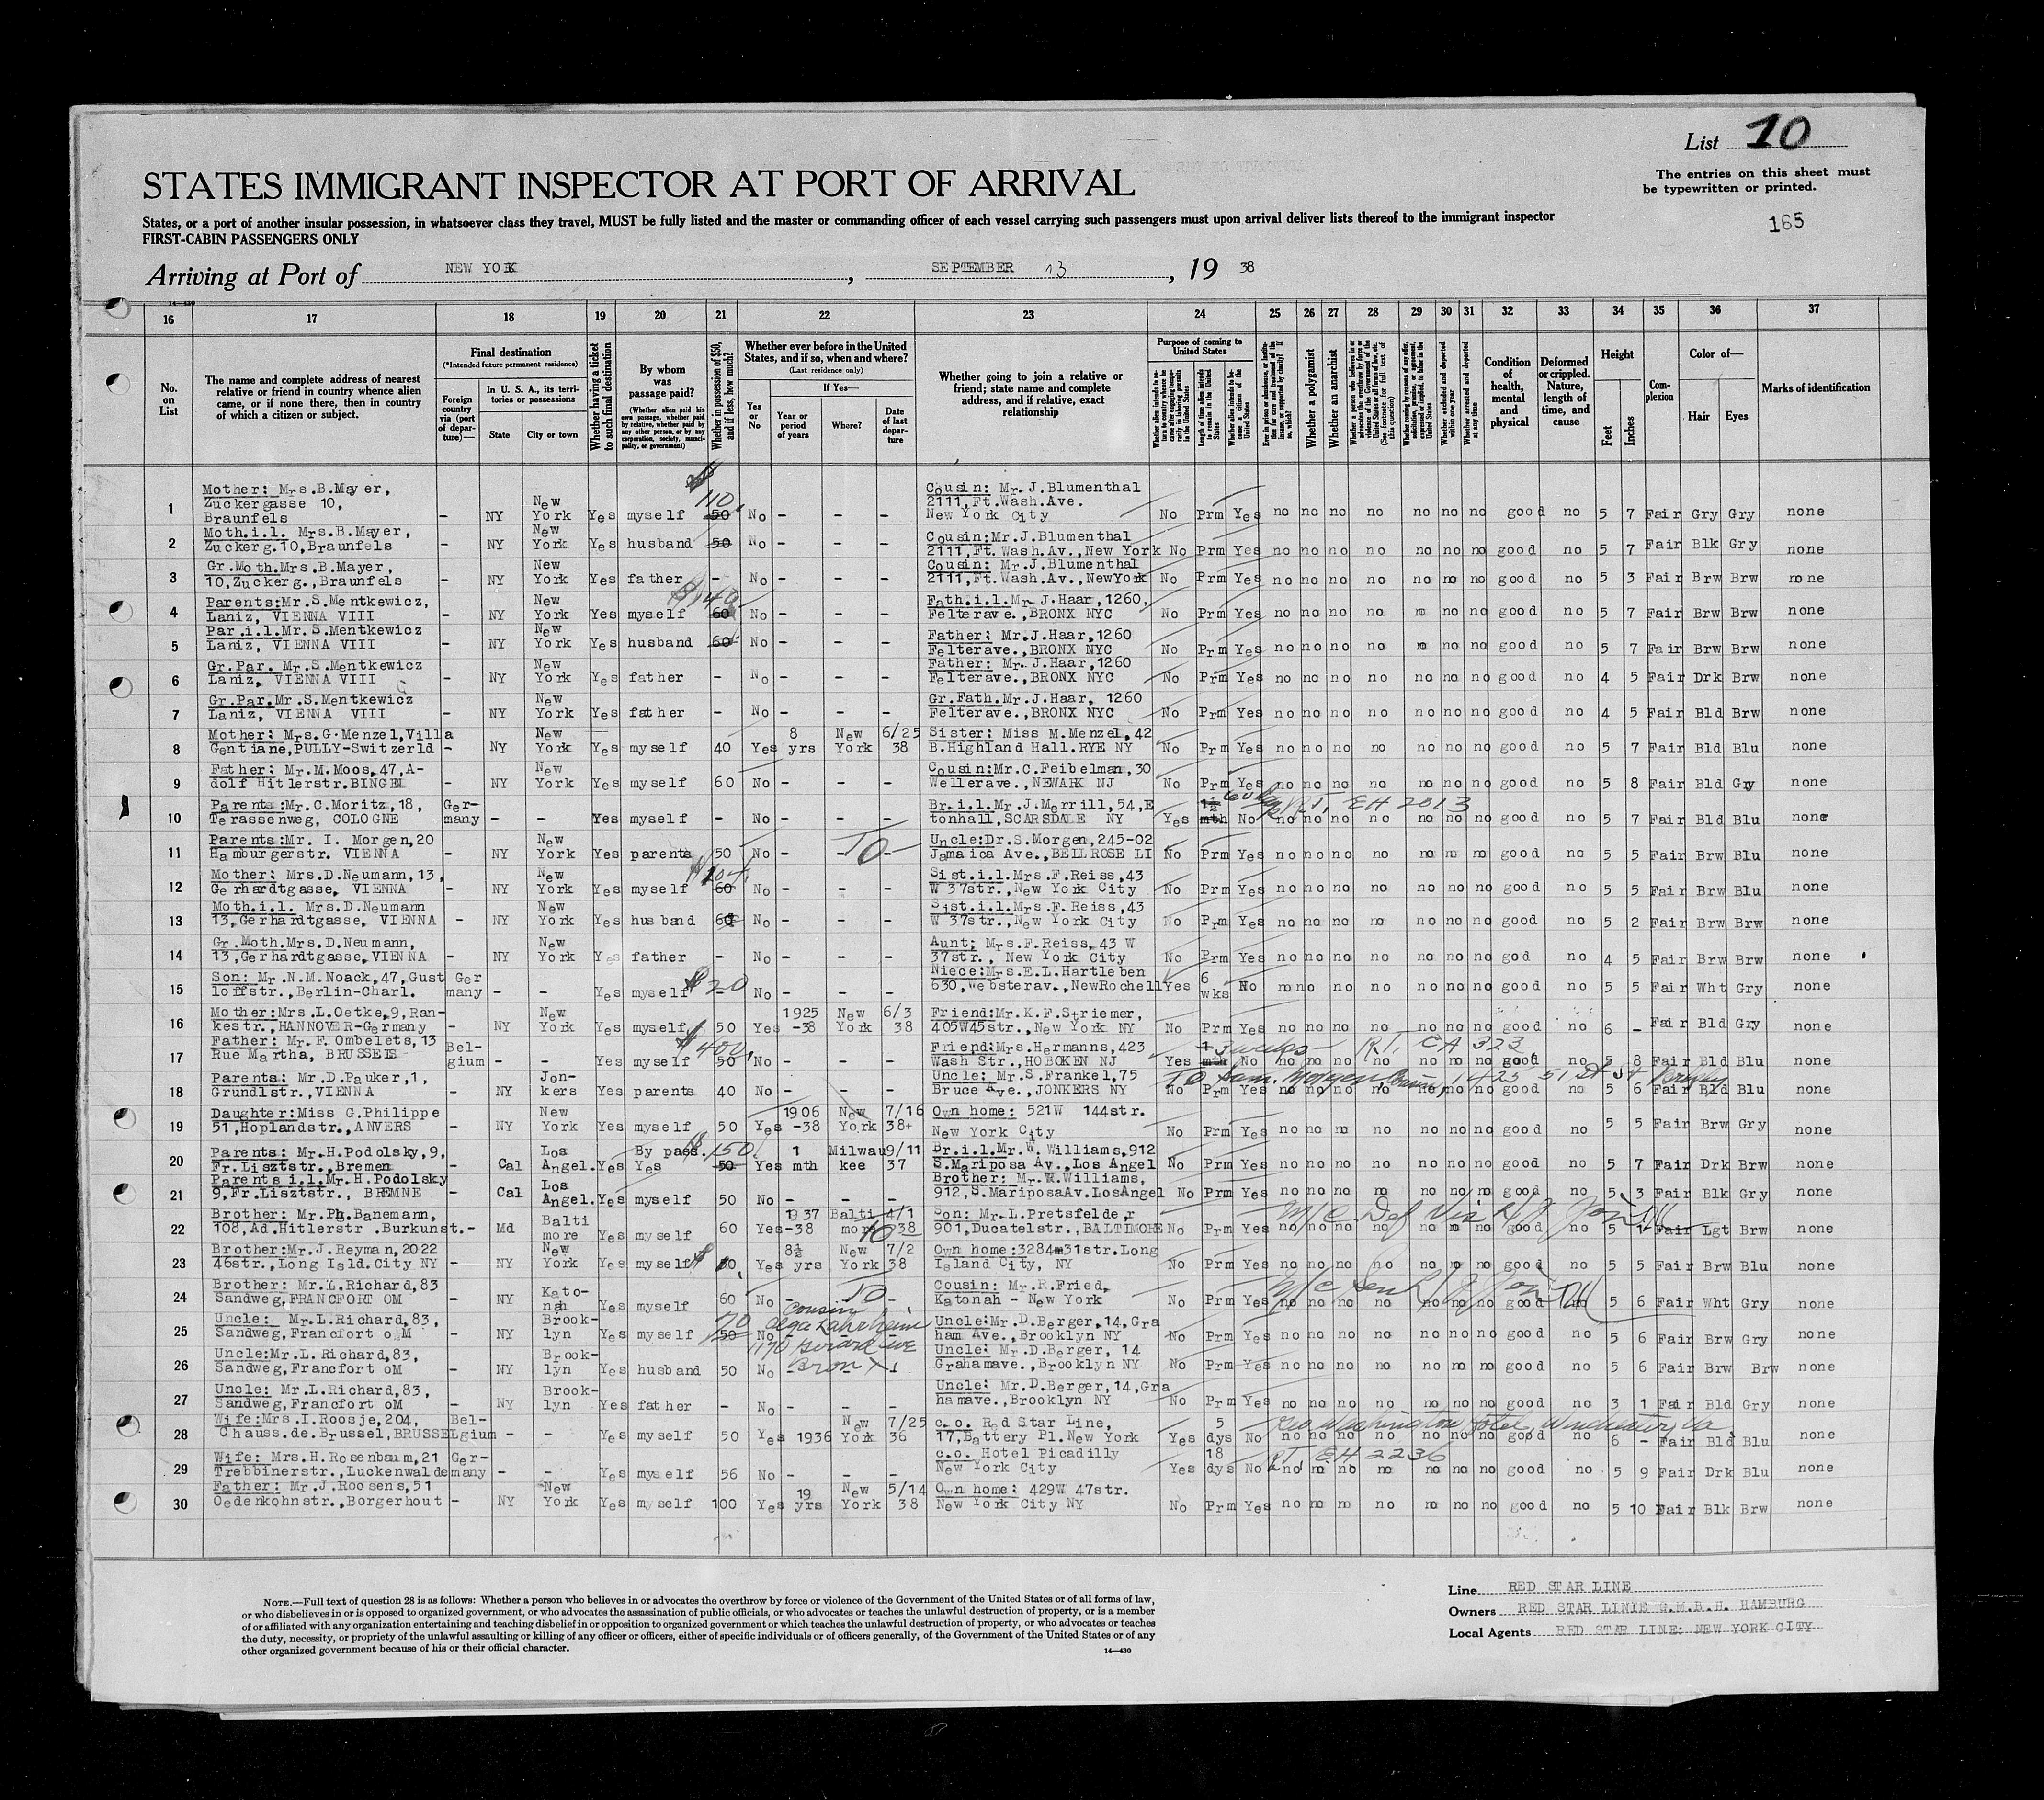 List 10
The entries on this sheet must
be typewritten or printed.
165
STATES IMMIGRANT INSPECTOR AT PORT OF ARRIVAL
States, or a port of another insular possession, in whatsoever class they travel, MUST be fully listed and the master or commanding officer of each vessel carrying such passengers must upon arrival deliver lists thereof to the immigrant inspector
FIRST-CABIN PASSENGERS ONLY
Arriving at Port of NEW YORK, SEPTEMBER 13, 19 38
14—430
16 17 18 19 20 21 22 23 24 25 26 27 28 29 30 31 32 33 34 35 36 37
No. on List
The name and complete address of nearest relative or friend in country whence alien came, or if none there, then in country of which a citizen or subject.
Final destination
(*Intended future permanent residence)
Foreign country via (port of departure)—
In U. S. A., its territories or possessions
State
City or town
Whether having a ticket to such final destination
By whom was passage paid?
(Whether alien paid his own passage, whether paid by relative, whether paid by any other person, or by any corporation, society, municipality, or government)
Whether in possession of $50, and if less, how much?
Whether ever before in the United States, and if so, when and where?
(Last residence only)
Yes or No
If Yes—
Year or period of years
Where?
Date of last departure
Whether going to join a relative or friend; state name and complete address, and if relative, exact relationship
Purpose of coming to United States
Length of time alien intends to remain in the United States
Whether a polygamist
Whether an anarchist
(See footnote for full text of this question)
Whether excluded and deported within one year
Whether arrested and deported at any time
Condition of health, mental and physical
Deformed or crippled. Nature, length of time, and cause
Height
Feet
Inches
Complexion
Color of—
Hair
Eyes
Marks of identification
1 Mother: Mrs.B.Mayer, Zuckergasse 10, Braunfels - NY New York Yes myself $110 50 No - - - Cousin: Mr.J.Blumenthal 2111,Ft.Wash.Ave. New York City No Prm Yes no no no no no no no good no 5 7 Fair Gry Gry none
2 Moth.i.l. Mrs.B.Mayer, Zuckerg.10,Braunfels - NY New York Yes husband 50 No - - - Cousin:Mr.J.Blumenthal 2111,Ft.Wash.Av.,New York No Prm Yes no no no no no no no good no 5 7 Fair Blk Gry none
3 Gr.Moth.Mrs.B.Mayer, 10,Zuckerg.,Braunfels - NY New York Yes father - No - - - Cousin: Mr.J.Blumenthal 2111,Ft.Wash.Av.,NewYork No Prm Yes no no no no no no no good no 5 3 Fair Brw Brw none
4 Parents:Mr.S.Mentkewicz, Laniz, VIENNA VIII - NY New York Yes myself $140 60 No - - - Fath.i.l.Mr. J.Haar,1260, Felterave.,BRONX NYC No Prm Yes no no no no no no no good no 5 7 Fair Brw Brw none
5 Par.i.l.Mr.S.Mentkewicz Laniz, VIENNA VIII - NY New York Yes husband 60 No - - - Father: Mr.J.Haar,1260 Felterave.,BRONX NYC No Prm Yes no no no no no no no good no 5 7 Fair Brw Brw none
6 Gr.Par. Mr.S.Mentkewicz Laniz, VIENNA VIII - NY New York Yes father - No - - - Father: Mr. J.Haar,1260 Felterave.,BRONX NYC No Prm Yes no no no no no no no good no 4 5 Fair Drk Brw none
7 Gr.Par.Mr.S.Mentkewicz Laniz, VIENNA VIII - NY New York Yes father - No - - - Gr.Fath.Mr.J.Haar, 1260 Felterave.,BRONX NYC No Prm Yes no no no no no no no good no 4 5 Fair Bld Brw none
8 Mother: Mrs.G.Menzel,Villa Gentiane,PULLY-Switzerld - NY New York Yes myself 40 Yes 8 yrs New York 6/25 38 Sister: Miss M.Menzel,42 B.Highland Hall.RYE NY No Prm Yes no no no no no no no good no 5 7 Fair Bld Blu none
9 Father: Mr.M.Moos,47,A- dolf Hitlerstr.BINGEN - NY New York Yes myself 60 No - - - Cousin:Mr.C.Feibelman,30 Wellerave., NEWARK NJ No Prm Yes no no no no no no no good no 5 8 Fair Bld Gry none
10 Parents:Mr.C.Moritz,18, Terassenweg, COLOGNE Ger- many - - Yes myself - No - - - Br.i.l.Mr.J.Merrill,54,E tonhall,SCARSDALE NY Yes 1½ mth No R.T. EH 2013 no no no no no no no good no 5 7 Fair Bld Blu none
11 Parents:Mr. I. Morgen,20 Hamburgerstr. VIENNA - NY New York Yes parents 50 No - - TO - Uncle:Dr.S.Morgen,245-02 Jamaica Ave.,BELLROSE LI No Prm Yes no no no no no no no good no 5 5 Fair Brw Blu none
12 Mother: Mrs.D.Neumann,13, Gerhardtgasse, VIENNA - NY New York Yes myself 60 No - - - Sist.i.l.Mrs.F.Reiss,43 W 37str.,New York City No Prm Yes no no no no no no no good no 5 5 Fair Brw Blu none
13 Moth.i.l. Mrs.D.Neumann 13,Gerhardtgasse, VIENNA - NY New York Yes husband 60 No - - - Sist.i.l.Mrs.F.Reiss,43 W 37str.,New York City No Prm Yes no no no no no no no good no 5 2 Fair Brw Brw none
14 Gr.Moth.Mrs.D.Neumann, 13,Gerhardtgasse,VIENNA - NY New York Yes father - No - - - Aunt: Mrs.F.Reiss,43 W 37str., New York City No Prm Yes no no no no no no no god no 4 5 Fair Brw Brw none
15 Son: Mr.N.M.Noack,47,Gust loffstr.,Berlin-Charl. Ger many - - Yes myself $20 - No - - - Niece:Mrs.E.L.Hartleben 630,Websterav.,NewRochell Yes 6 wks No no no no no no no no good no 5 5 Fair Wht Gry none
16 Mother:Mrs.L.Oetke,9,Ran- kestr.,HANNOVER-Germany - NY New York Yes myself 50 Yes 1925 -38 New York 6/3 38 Friend:Mr.K.F.Striemer, 405W45str.,New York NY No Prm Yes no no no no no no no good no 6 - Fair Bld Gry none
17 Father: Mr.F. Ombelets,13 Rue Martha, BRUSSELS Bel- gium - - Yes myself $400 50 No - - - Friend:Mrs.Hermanns,423 Wash Str.,HOBOKEN NJ Yes 1 mth 3 weeks No R.T. CA 323 no no no no no no no good no 5 8 Fair Bld Blu none
18 Parents: Mr.D.Pauker,1, Grundlstr.,VIENNA - NY Jon- kers Yes parents 40 No - - - Uncle: Mr.S.Frankel,75 Bruce Ave.,JONKERS NY TO Sam. Morgen 1425 51 St No Prm Yes no no no no no no no good no 5 6 Fair Bld Blu none
19 Daughter:Miss G.Philippe 51,Hoplandstr.,ANVERS - NY New York Yes myself 50 Yes 1906 -38 New York 7/16 38+ Own home: 521W 144str. New York City No Prm Yes no no no no no no no good no 5 5 Fair Brw Gry none
20 Parents: Mr.H.Podolsky,9, Fr.Lisztstr.,Bremen - Cal Los Angel. Yes By pass. Yes $150 50 Yes 1 mth Milwau kee 9/11 37 Br.i.l.Mr.W.Williams,912 S.Mariposa Av.,Los Angel No Prm Yes no no no no no no no good no 5 7 Fair Drk Brw none
21 Parents i.l.Mr.H.Podolsky 9,Fr.Lisztstr., BREMNE - Cal Los Angel. Yes myself 50 No - - - Brother: Mr.W.Williams, 912,S.MariposaAv.LosAngel No Prm Yes no no no no no no no good no 5 3 Fair Blk Gry none
22 Brother: Mr.Ph.Banemann, 108,Ad.Hitlerstr.Burkunst.- Md Balti more Yes myself 60 Yes 1937 -38 Balti more 4/1 38 TO Son: Mr.L.Pretsfelder 901,Ducatelstr.,BALTIMORE No Prm Yes no no no no no no no good no 5 1 Fair Lgt Brw none
23 Brother:Mr.J.Reyman,2022 46str.,Long Isld.City NY - NY New York Yes myself $ Yes 8½ yrs New York 7/2 38 Own home:3284 31str.Long Island City, NY No Prm Yes no no no no no no no good no 5 5 Fair Brw Blu none
24 Brother: Mr.L.Richard,83 Sandweg,FRANCFORT OM - NY Kato- nah Yes myself 60 No - TO - Cousin: Mr.R.Fried, Katonah - New York No Prm Yes no no no no no no no good no 5 6 Fair Wht Gry none
25 Uncle: Mr.L.Richard,83, Sandweg,Francfort oM - NY Brook- lyn Yes myself 70 50 No cousin Olga 1170 Gerard Ave Bronx Uncle:Mr.D.Berger,14,Gra ham Ave.,Brooklyn NY No Prm Yes no no no no no no no good no 5 6 Fair Brw Gry none
26 Uncle:Mr.L.Richard,83, Sandweg,Francfort oM - NY Brook- lyn Yes husband 50 No - - - Uncle: Mr.D.Berger, 14 Grahamave.,Brooklyn NY No Prm Yes no no no no no no no good no 5 6 Fair Brw Brw none
27 Uncle: Mr.L.Richard,83, Sandweg,Francfort oM - NY Brook- lyn Yes father - No - - - Uncle: Mr.D.Berger,14,Gra hamave.,Brooklyn NY No Prm Yes no no no no no no no good no 3 1 Fair Bld Gry none
28 Wife:Mrs.I.Roosje,204, Chauss.de.Brussel,BRUSSEL Bel- gium - - Yes myself 50 Yes 1936 New York 7/25 36 c.o. Red Star Line, 17,Battery Pl.New York Yes 5 dys No Geo Washington Hotel, Winchester, Va no no no no no no no good no 6 - Fair Bld Blu none
29 Wife: Mrs.H.Rosenbaum,21 Trebbinerstr.,Luckenwalde Ger- many - - Yes myself 56 No - - - c.o. Hotel Picadilly New York City Yes 18 dys No R.T. EH 2236 no no no no no no no good no 5 9 Fair Drk Blu none
30 Father: Mr.J.Roosens,51 Oedenkohnstr.,Borgerhout - NY New York Yes myself 100 Yes 19 yrs New York 5/14 38 Own home: 429W 47str. New York City NY No Prm Yes no no no no no no no good no 5 10 Fair Blk Brw none
NOTE.—Full text of question 28 is as follows: Whether a person who believes in or advocates the overthrow by force or violence of the Government of the United States or of all forms of law,
or who disbelieves in or is opposed to organized government, or who advocates the assassination of public officials, or who advocates or teaches the unlawful destruction of property, or is a member
of or affiliated with any organization entertaining and teaching disbelief in or opposition to organized government or which teaches the unlawful destruction of property, or who advocates or teaches
the duty, necessity, or propriety of the unlawful assaulting or killing of any officer or officers, either of specific individuals or of officers generally, of the Government of the United States or of any
other organized government because of his or their official character.
14—430
Line RED STAR LINE
Owners RED STAR LINIE G.M.B.H. HAMBURG
Local Agents RED STAR LINE: NEW YORK CITY